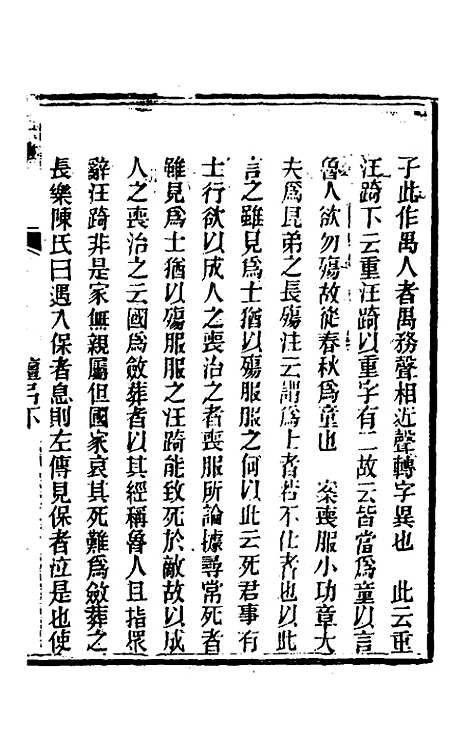 子此作禺人者禺務聲相近聲轉字異也　此云重
汪踦下云重汪踦以重字有二故云皆當爲童以言
魯人欲勿殤故從春秋爲童也　案喪服小功章大
夫爲昆弟之長殤注云謂爲士者若不仕者也以此
言之雖見爲士猶以殤服服之何以此云死君事有
士行欲以成人之喪治之者喪服所論據尋常死者
雖見爲士猶以殤服服之汪踦能致死於敵故以成
人之喪治之云國爲斂葬者以其經稱魯人且指眾
辭汪踦非是家無親屬但國家哀其死難爲斂葬之
長樂陳氏曰遇入保者息則左傳見保者泣是也使
檀弓下